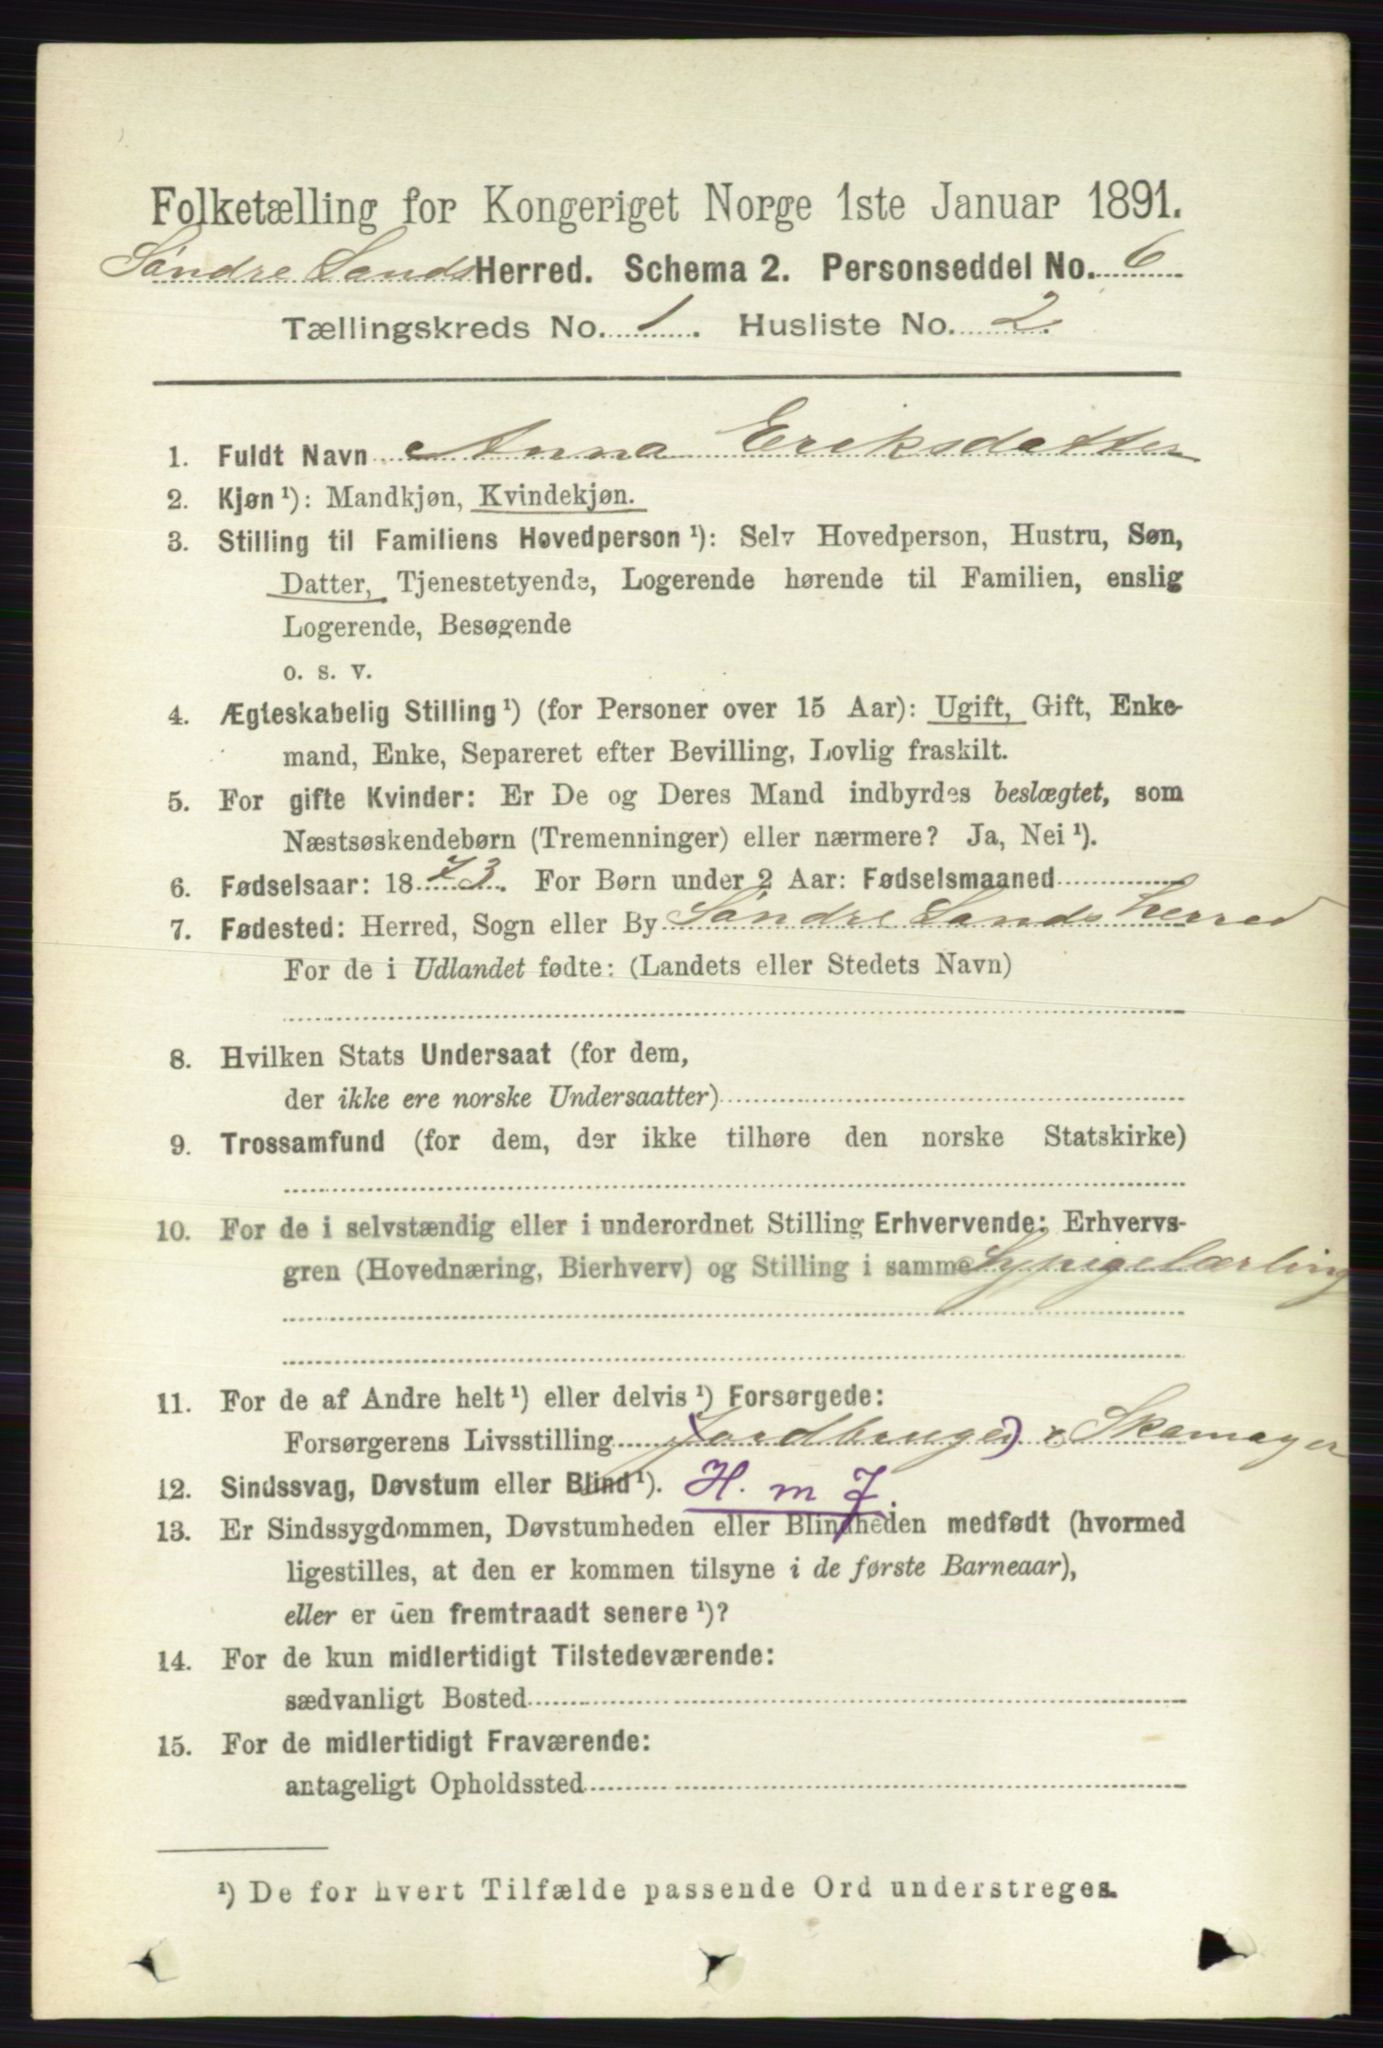 Folketælling for Kongeriget Norge 1ste Januar 1891.
Søndre Lands Herred. Schema 2. Personseddel No. 6
Tællingskreds No. 1. Husliste No. 2.
1. Fuldt Navn Anna Eriksdatter
2. Kjøn ¹): Mandkjøn, Kvindekjøn.
3. Stilling til Familiens Hovedperson ¹): Selv Hovedperson, Hustru, Søn,
Datter, Tjenestetyende, Logerende hørende til Familien, enslig
Logerende, Besøgende
o. s. v.
4. Ægteskabelig Stilling ¹) (for Personer over 15 Aar): Ugift, Gift, Enke-
mand, Enke, Separeret efter Bevilling, Lovlig fraskilt.
5. For gifte Kvinder: Er De og Deres Mand indbyrdes beslægtet, som
Næstsøskendebørn (Tremenninger) eller nærmere? Ja, Nei ¹).
6. Fødselsaar: 1873. For Børn under 2 Aar: Fødselsmaaned
7. Fødested: Herred, Sogn eller By Søndre Lands herred
For de i Udlandet fødte: (Landets eller Stedets Navn)
8. Hvilken Stats Undersaat (for dem,
der ikke ere norske Undersaatter)
9. Trossamfund (for dem, der ikke tilhøre den norske Statskirke)
10. For de i selvstændig eller i underordnet Stilling Erhvervende: Erhvervs-
gren (Hovednæring, Bierhverv) og Stilling i samme Sypigelærling
11. For de af Andre helt ¹) eller delvis ¹) Forsørgede:
Forsørgerens Livsstilling Jordbruger) & Skomager
12. Sindssvag, Døvstum eller Blind ¹). H. m 7.
13. Er Sindssygdommen, Døvstumheden eller Blindheden medfødt (hvormed
ligestilles, at den er kommen tilsyne i de første Barneaar),
eller er den fremtraadt senere ¹)?
14. For de kun midlertidigt Tilstedeværende:
sædvanligt Bosted
15. For de midlertidigt Fraværende:
antageligt Opholdssted
¹) De for hvert Tilfælde passende Ord understreges.